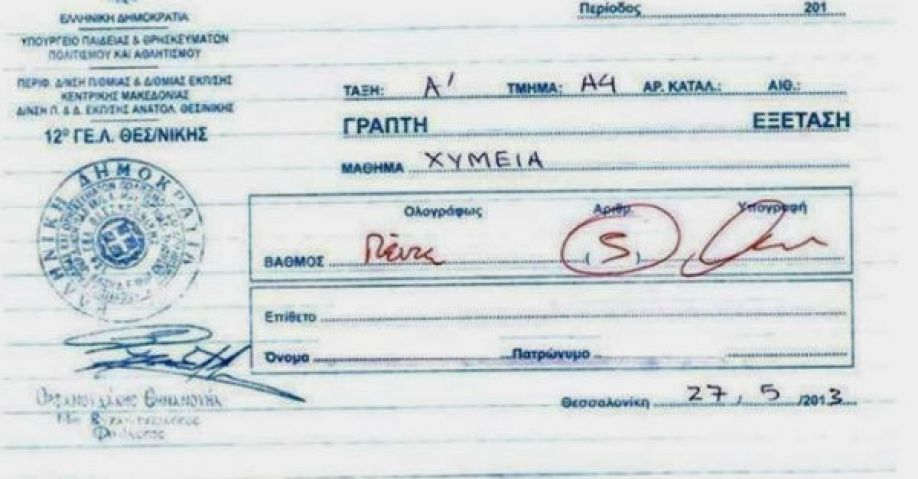 Περίοδος 201
ΕΛΛΗΝΙΚΗ ΔΗΜΟΚΡΑΤΙΑ
ΥΠΟΥΡΓΕΙΟ ΠΑΙΔΕΙΑΣ & ΘΡΗΣΚΕΥΜΑΤΩΝ
ΠΟΛΙΤΙΣΜΟΥ ΚΑΙ ΑΘΛΗΤΙΣΜΟΥ
ΠΕΡΙΦ. Δ/ΝΣΗ Π/ΘΜΙΑΣ & Δ/ΘΜΙΑΣ ΕΚΠ/ΣΗΣ
ΚΕΝΤΡΙΚΗΣ ΜΑΚΕΔΟΝΙΑΣ
Δ/ΝΣΗ Π. & Δ. ΕΚΠ/ΣΗΣ ΑΝΑΤΟΛ. ΘΕΣ/ΝΙΚΗΣ
12º ΓΕ.Λ. ΘΕΣ/ΝΙΚΗΣ
ΤΑΞΗ: Α' ΤΜΗΜΑ: Α4 ΑΡ. ΚΑΤΑΛ.: ΑΙΘ.:
ΓΡΑΠΤΗ ΕΞΕΤΑΣΗ
ΜΑΘΗΜΑ ΧΥΜΕΙΑ
ΕΛΛΗΝΙΚΗ ΔΗΜΟΚΡΑΤΙΑ
Ολογράφως Αριθμ. Υπογραφή
ΒΑΘΜΟΣ Πέντε (5)
Επίθετο
Όνομα Πατρώνυμο
Θεσσαλονίκη 27, 5 /2013